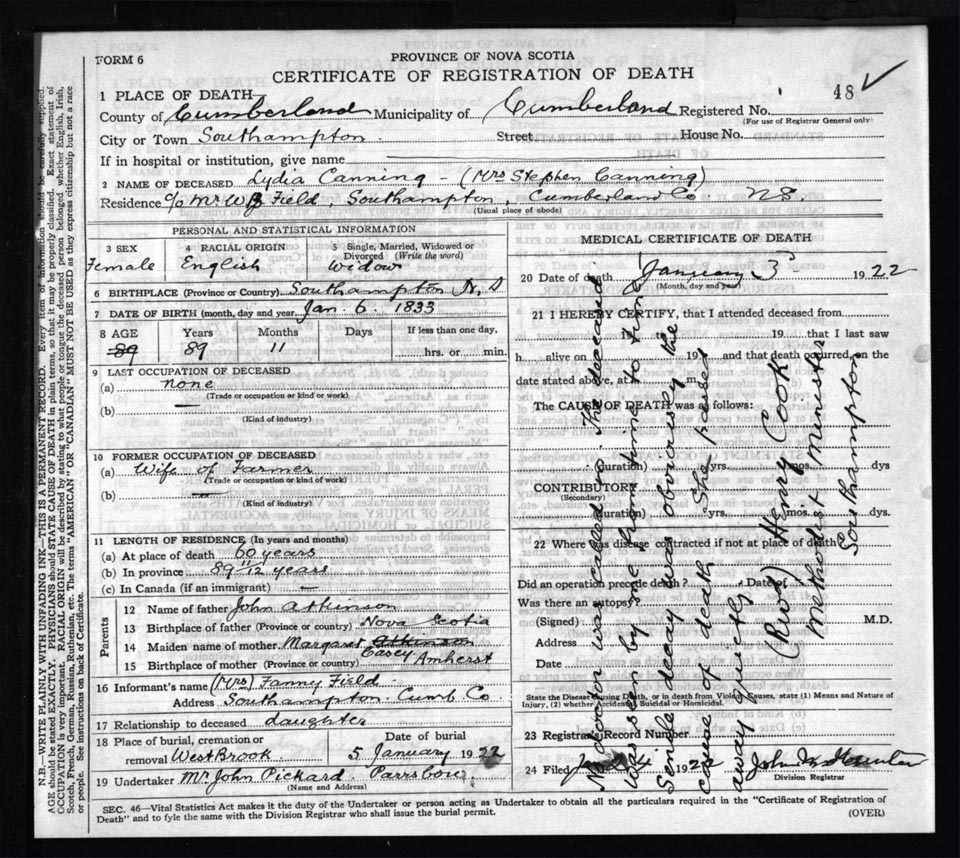 PROVINCE OF NOVA SCOTIA
FORM 6
CERTIFICATE OF REGISTRATION OF DEATH
48 ✓
1 PLACE OF DEATH—
County of Cumberland Municipality of Cumberland Registered No.
(For use of Registrar General only)
City or Town Southampton Street House No.
If in hospital or institution, give name
2 NAME OF DECEASED Lydia Canning - (Mrs Stephen Canning)
Residence c/o Mr W B Field, Southampton, Cumberland Co. NS.
(Usual place of abode)
PERSONAL AND STATISTICAL INFORMATION
3 SEX 4 RACIAL ORIGIN 5 Single, Married, Widowed or Divorced (Write the word)
Female English Widow
6 BIRTHPLACE (Province or Country) Southampton N. S
7 DATE OF BIRTH (month, day and year) Jan. 6. 1833
8 AGE Years Months Days If less than one day,
89 89 11 hrs. or min.
9 LAST OCCUPATION OF DECEASED
(a) none
(Trade or occupation or kind or work)
(b) —
(Kind of industry)
10 FORMER OCCUPATION OF DECEASED
(a) Wife of Farmer
(Trade or occupation or kind or work)
(b) —
(Kind of industry)
11 LENGTH OF RESIDENCE (In years and months)
(a) At place of death 60 years
(b) In province 89 11/12 years
(c) In Canada (if an immigrant) —
Parents
12 Name of father John Atkinson
13 Birthplace of father (Province or country) Nova Scotia
14 Maiden name of mother Margaret Atkinson Casey
15 Birthplace of mother (Province or country) Amherst
16 Informant's name (Mrs) Fanny Field
Address Southampton Cumb. Co
17 Relationship to deceased daughter
18 Place of burial, cremation or removal West Brook Date of burial 5 January 1922
19 Undertaker Mr John Pickard Parrsboro
(Name and Address)
MEDICAL CERTIFICATE OF DEATH
20 Date of death January 3 1922
(Month, day and year)
21 I HEREBY CERTIFY, that I attended deceased from
19 that I last saw
h alive on 19 and that death occurred, on the
date stated above, at m.
The CAUSE OF DEATH was as follows:
(duration) yrs. mos. dys
CONTRIBUTORY
(Secondary)
(duration) yrs. mos. dys.
22 Where was disease contracted if not at place of death?
Did an operation precede death? Date of
Was there an autopsy?
(Signed) M.D.
Address
Date
State the Disease causing Death, or in death from Violent Causes, state (1) Means and Nature of
Injury, (2) whether Accidental, Suicidal or Homicidal.
23 Registrar's Record Number
24 Filed 4 1922
Division Registrar
No doctor was called in. The deceased
was seen by me from time to time.
Senile decay was obviously the
cause of death. She passed
away quietly
(Rev) Henry Cook
Methodist Minister
Southampton
SEC. 46—Vital Statistics Act makes it the duty of the Undertaker or person acting as Undertaker to obtain all the particulars required in the "Certificate of Registration of
Death" and to fyle the same with the Division Registrar who shall issue the burial permit.
(OVER)
N.B.—WRITE PLAINLY WITH UNFADING INK—THIS IS A PERMANENT RECORD. Every item of information should be carefully supplied.
AGE should be stated EXACTLY. PHYSICIANS should STATE CAUSE OF DEATH in plain terms, so that it may be properly classified. Exact statement of
OCCUPATION is very important. RACIAL ORIGIN will be described by stating to what people or tongue the deceased person belonged, whether English, Irish,
Scotch, French, German, Russian, Ruthenian, etc. The terms "AMERICAN" or "CANADIAN" MUST NOT BE USED as they express citizenship but not a race
or people. See instructions on back of Certificate.